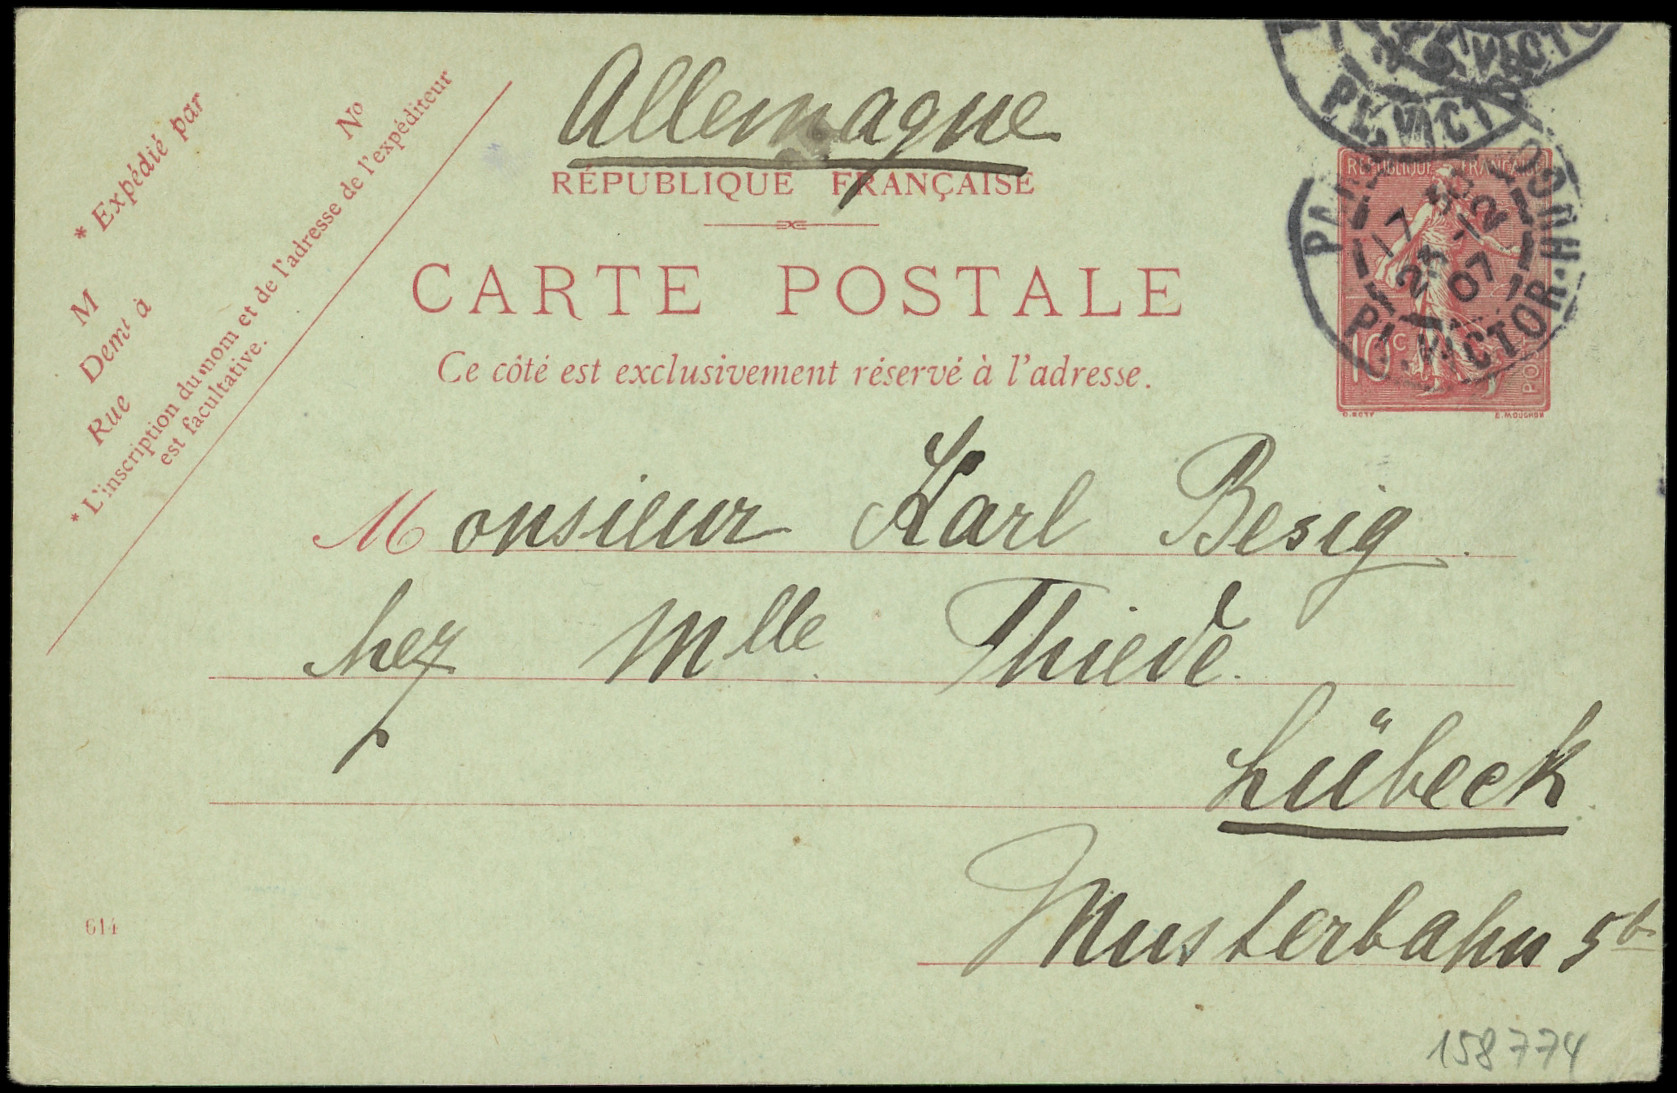 Allemagne
RÉPUBLIQUE FRANÇAISE
CARTE POSTALE
Ce côté est exclusivement réservé à l'adresse.
* Expédié par
M
Demt à
Rue
No
* L'inscription du nom et de l'adresse de l'expéditeur
est facultative.
REPUBLIQUE FRANÇAISE
10 c
POSTES
O. ROTY
E. MOUCHON
PL. VICTOR
PL. VICTOR-HUGO
17
-12
07
Monsieur Karl Besig
chez Mlle Thiede.
Lübeck
Musterbahn 5b.
614
158774